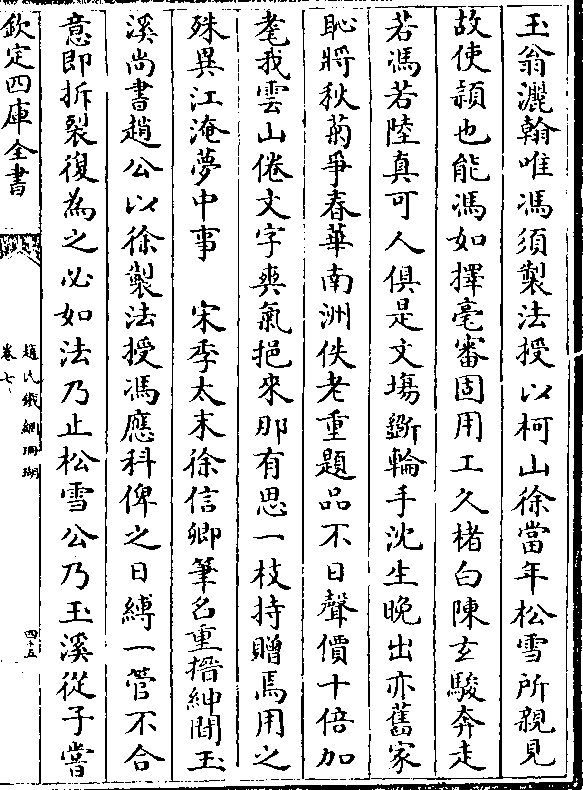 玉翁灑翰唯馮須製法授以柯山徐當年松雪所親見
故使穎也能馮如擇毫審固用工久楮白陳玄駿奔走
若馮若陸真可人俱是文塲斵輪手沈生晚出亦舊家
恥將秋菊爭春華南洲佚老重題品不日聲價十倍加
耄我雲山倦文字爽氣挹來那有思一枝持贈焉用之
殊異江淹夢中事　宋季太末徐信卿筆名重搢紳間玉
溪尚書趙公以徐製法授馮應科俾之日縛一管不合
意即拆裂復為之必如法乃止松雪公乃玉溪從子嘗
欽定四庫全書
趙氏鐵網珊瑚
卷七
四五